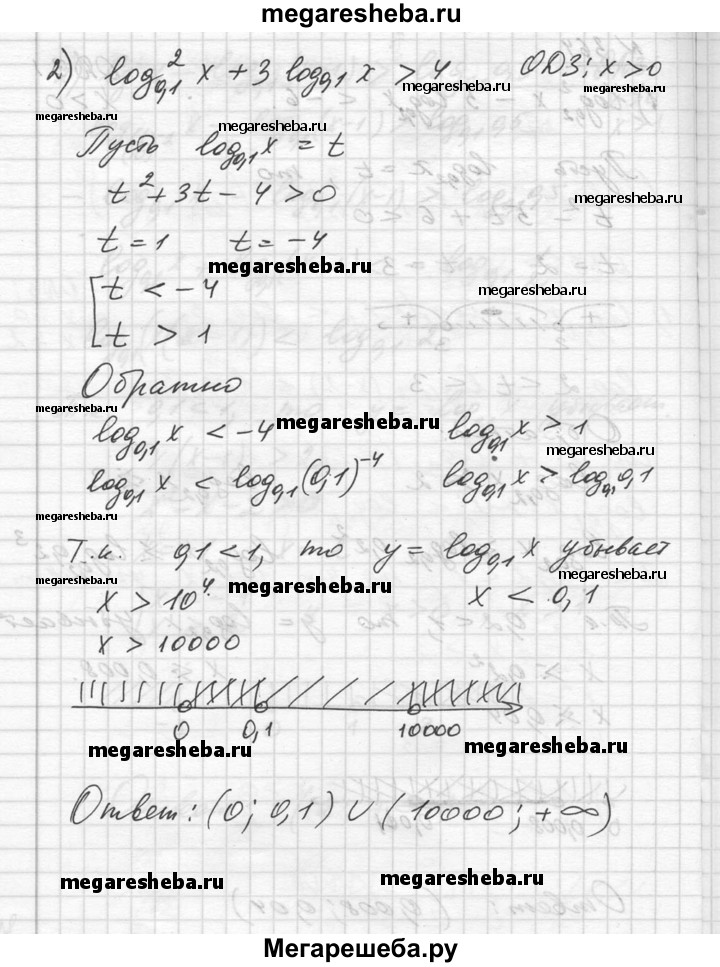 megaresheba.ru
2) log²₀,₁ x + 3 log₀,₁ x > 4 ОДЗ: x > 0
megaresheba.ru megaresheba.ru
megaresheba.ru
Пусть log₀,₁ x = t
t² + 3t - 4 > 0 megaresheba.ru
t = 1 t = -4
megaresheba.ru
[ t < -4 megaresheba.ru
t > 1
Обратно
megaresheba.ru megaresheba.ru
log₀,₁ x < -4 log₀,₁ x > 1
megaresheba.ru
log₀,₁ x < log₀,₁ (0,1)⁻⁴ log₀,₁ x > log₀,₁ 0,1
megaresheba.ru
Т.к. 0,1 < 1, то y = log₀,₁ x убывает
megaresheba.ru megaresheba.ru megaresheba.ru
x > 10⁴. x < 0,1
x > 10000
0 0,1 10000
megaresheba.ru megaresheba.ru
Ответ: (0; 0,1) ∪ (10000; +∞)
megaresheba.ru megaresheba.ru
Мегарешеба.ру